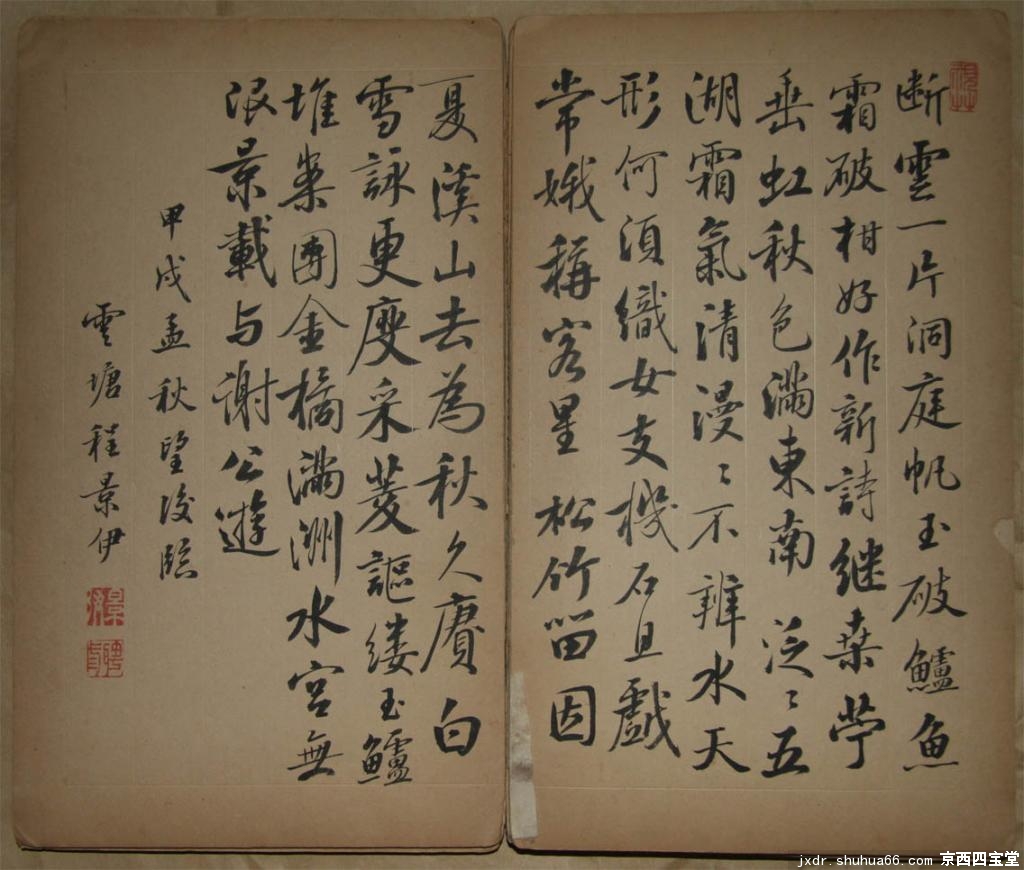 断雲一片洞庭帆玉破鱸魚
霜破柑好作新詩継桑苧
垂虹秋色滿東南 泛〻五
湖霜氣清漫〻不辨水天
形何須織女支機石且戲
常娥稱客星 松竹留因
夏溪山去為秋久賡白
雪詠更度采菱謳縷玉鱸
堆案團金橘滿洲水宮無
限景載与謝公遊
甲戌孟秋望後臨
雲塘程景伊
jxdr.shuhua66.com 京西四宝堂